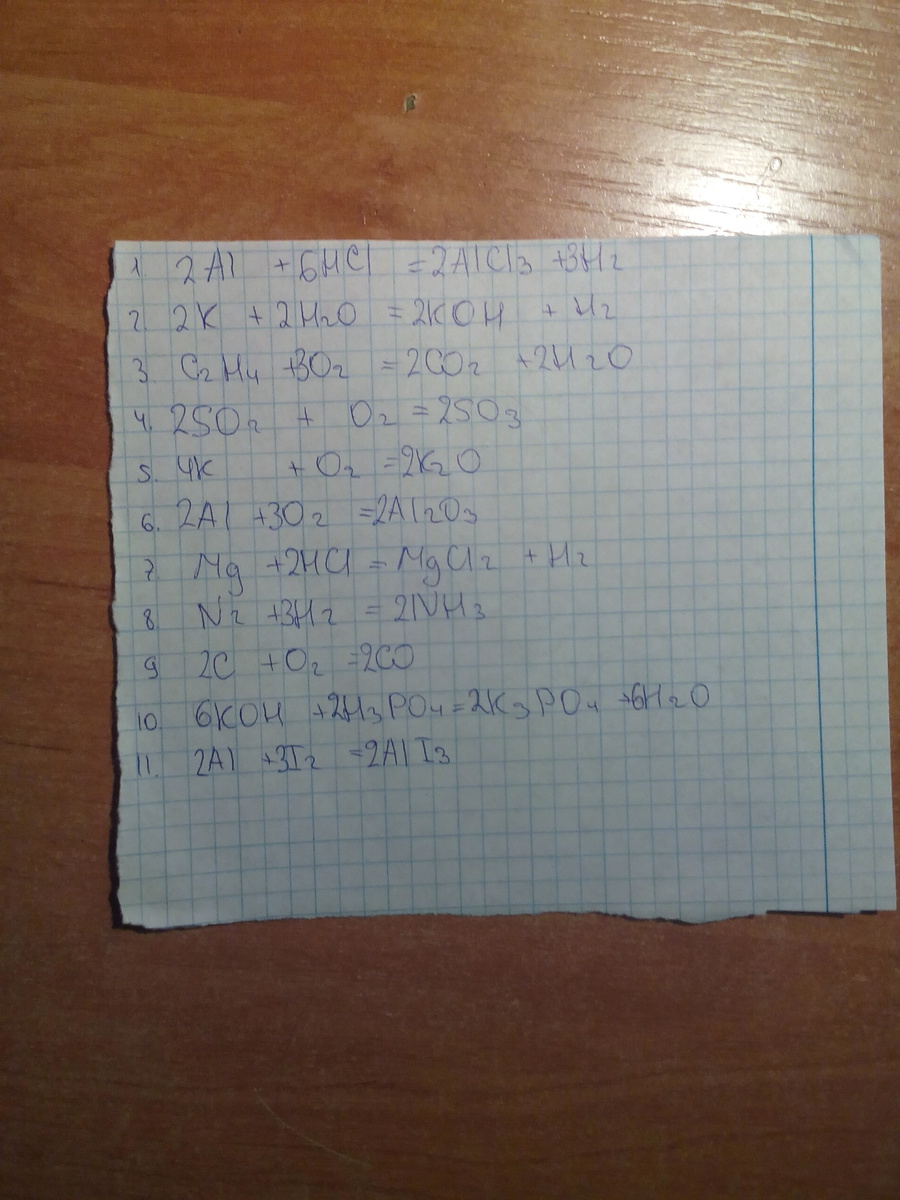 1. 2Al + 6HCl = 2AlCl3 + 3H2
2. 2K + 2H2O = 2KOH + H2
3. C2H4 + 3O2 = 2CO2 + 2H2O
4. 2SO2 + O2 = 2SO3
5. 4K + O2 = 2K2O
6. 2Al + 3O2 = 2Al2O3
7 Mg + 2HCl = MgCl2 + H2
8. N2 + 3H2 = 2NH3
9 2C + O2 = 2CO
10. 6KOH + 2H3PO4 = 2K3PO4 + 6H2O
11. 2Al + 3I2 = 2AlI3